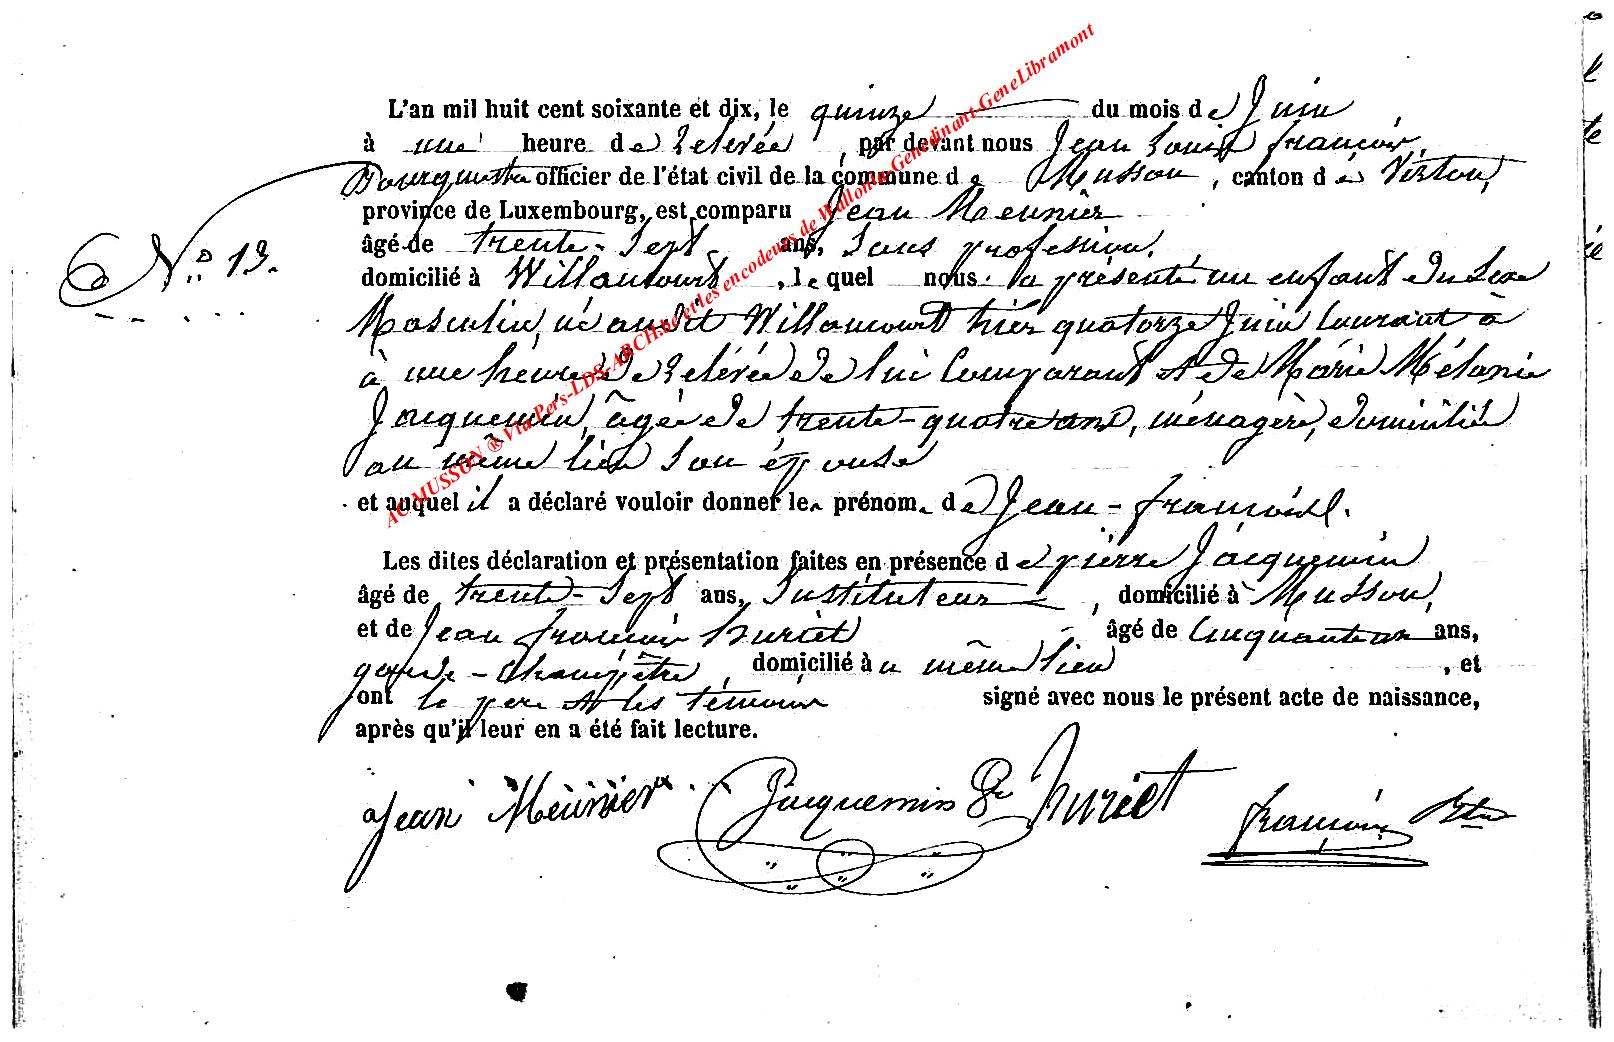 L'an mil huit cent soixante et dix, le quinze du mois de Juin
à une heure de relevée, par devant nous Jean Louis françois,
Bourgmestre officier de l'état civil de la commune de Musson, canton de Virton,
province de Luxembourg, est comparu Jean Meunier
âgé de trente-sept ans, sans profession,
N.º 13.
domicilié à Willancourt, lequel nous a présenté un enfant du sexe
Masculin, né audit Willancourt hier quatorze Juin courant à
à une heure de relevée de lui Comparant et de Marie Mélanie
Jacquemin, âgée de trente-quatre ans, ménagère, domiciliée
au même lieu son épouse
et auquel il a déclaré vouloir donner le prénom de Jean-françois.
Les dites déclaration et présentation faites en présence de pierre Jacquemin
âgé de trente-sept ans, Instituteur, domicilié à Musson,
et de Jean françois huriet âgé de Cinquante ans,
garde-Champêtre, domicilié au même lieu, et
ont le père et les témoins signé avec nous le présent acte de naissance,
après qu'il leur en a été fait lecture.
Jean Meunier Jacquemin Pre huriet françois Btre
AC MUSSON ® Via Pers-LDS-ARCH.be et les encodeurs de Wallonia-Genedinant-GeneLibramont